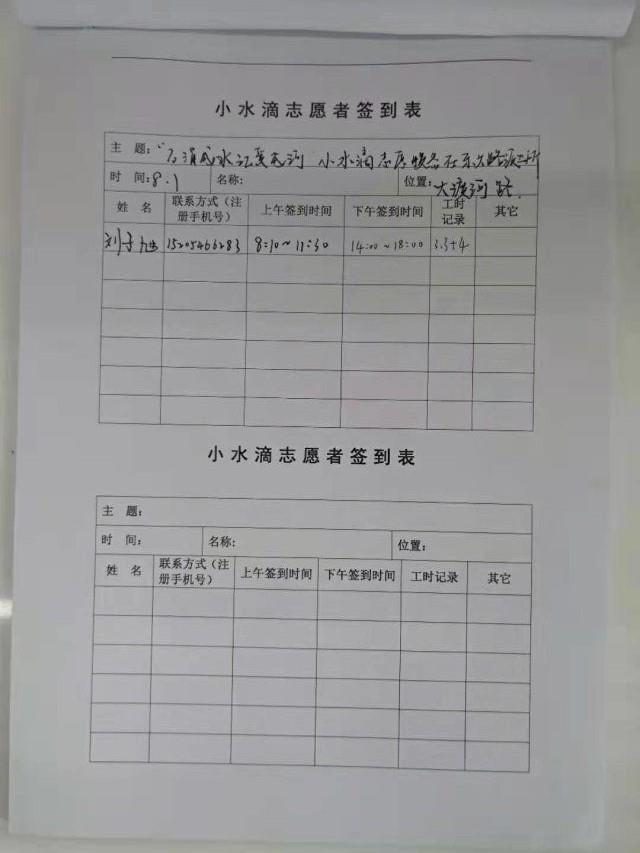 小水滴志愿者签到表
主 题： 小水滴志愿服务在
时 间：8.1 名称： 位置：大渡河路
姓 名 联系方式（注册手机号） 上午签到时间 下午签到时间 工时记录 其它
刘子旭 15205466283 8:10~11:30 14:00~18:00 3.5+4
小水滴志愿者签到表
主 题：
时 间： 名称： 位置：
姓 名 联系方式（注册手机号） 上午签到时间 下午签到时间 工时记录 其它